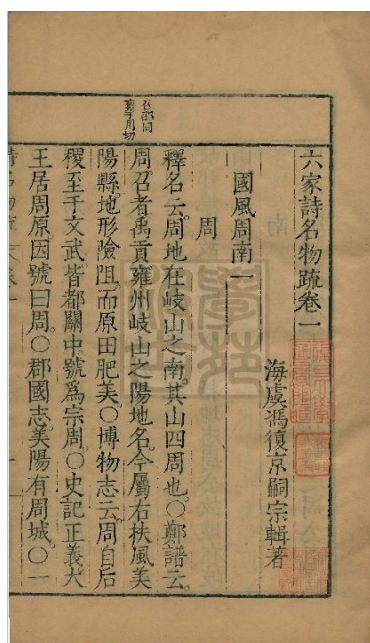 六家詩名物疏卷一
海虞馮復京嗣宗輯著
國風周南一
周
釋名云周地在岐山之南其山四周也○鄭譜云
周召者禹貢雍州岐山之陽地名今屬右扶風美
陽縣地形險阻而原田肥美○博物志云周自后
稷至于文武皆都關中號爲宗周○史記正義大
王居周原因號曰周○郡國志美陽有周城○一